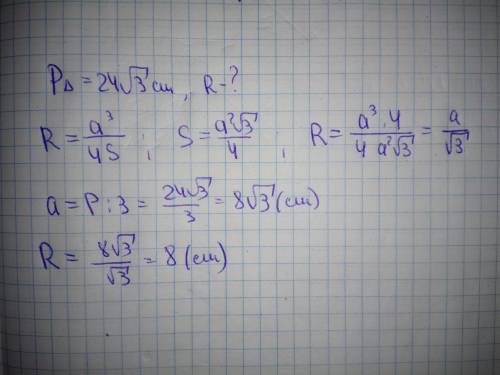 P△ = 24√3 cm, R-?
R = a³/4S ; S = a²√3/4 ; R = a³·4/4a²√3 = a/√3
a = P:3 = 24√3/3 = 8√3 (cm)
R = 8√3/√3 = 8 (cm)